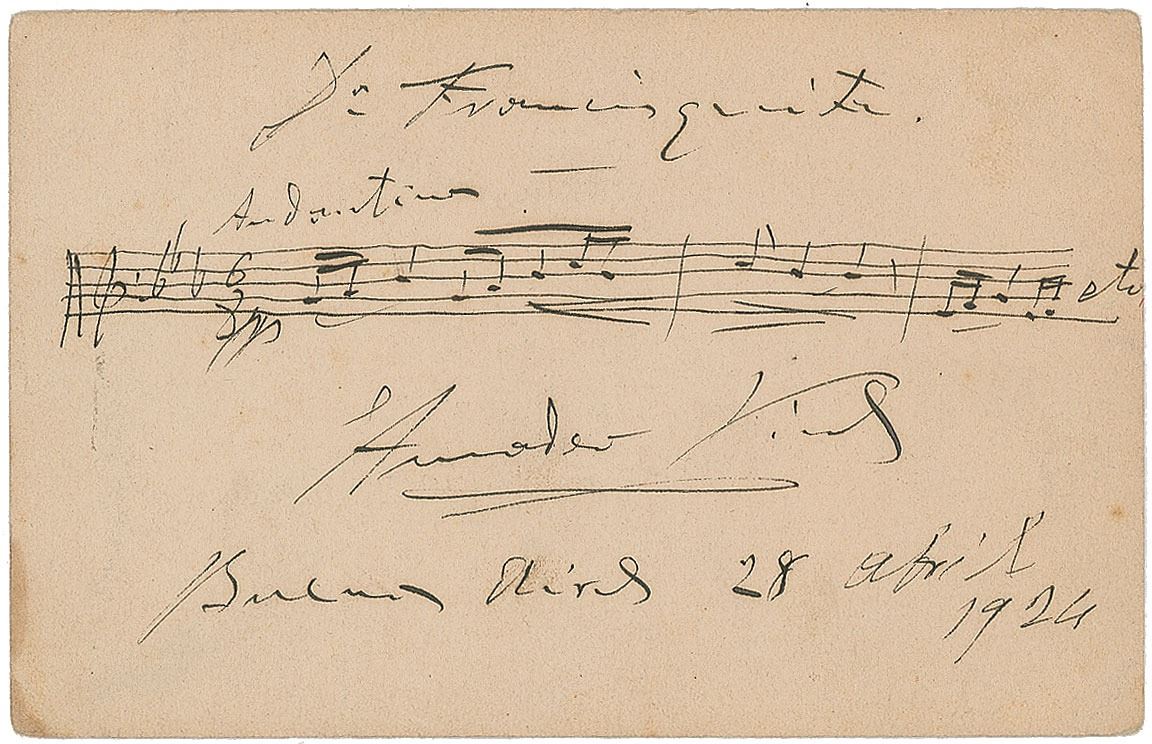 Dª Francisquita.
Andantino
6
pp
etc
Amadeo Vives
Buenos Aires 28 abril
1924